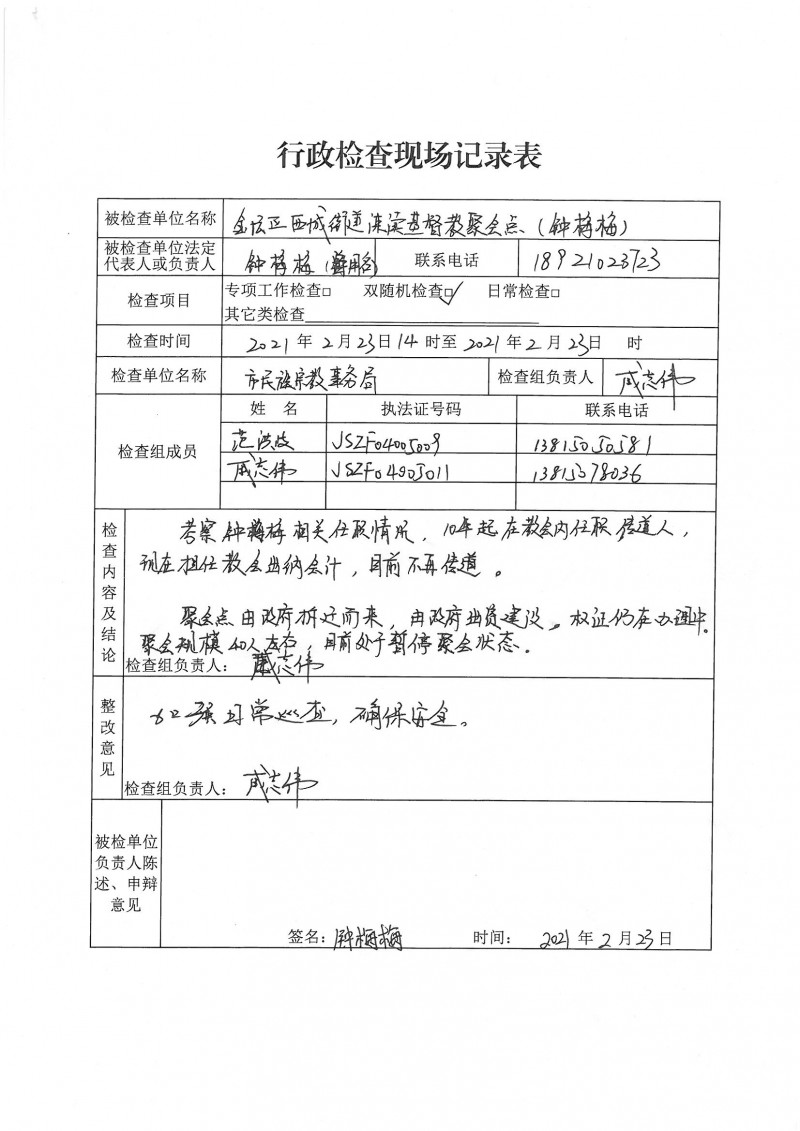 行政检查现场记录表
被检查单位名称 金坛区西城街道 基督教聚会点(钟梅梅)
被检查单位法定代表人或负责人 钟梅梅 联系电话 18921023723
检查项目 专项工作检查□ 双随机检查☑ 日常检查□
其它类检查
检查时间 2021 年 2 月 23 日 14 时至 2021 年 2 月 23 日 时
检查单位名称 市民族宗教事务局 检查组负责人 戚志伟
姓 名 执法证号码 联系电话
检查组成员
范洪波 JSZF04005009 13815050581
戚志伟 JSZF04005011 13815078036
检查内容及结论
考察钟梅梅相关任职情况,10年起在教会内任职传道人,
现在担任教会出纳会计,目前不再传道。
聚会点由政府拆迁而来,由政府出资建设。权证仍在办理中。
聚会规模40人左右,目前处于暂停聚会状态。
检查组负责人: 戚志伟
整改意见
加强日常巡查,确保安全。
检查组负责人: 戚志伟
被检单位负责人陈述、申辩意见
签名: 钟梅梅 时间: 2021 年 2 月 23 日